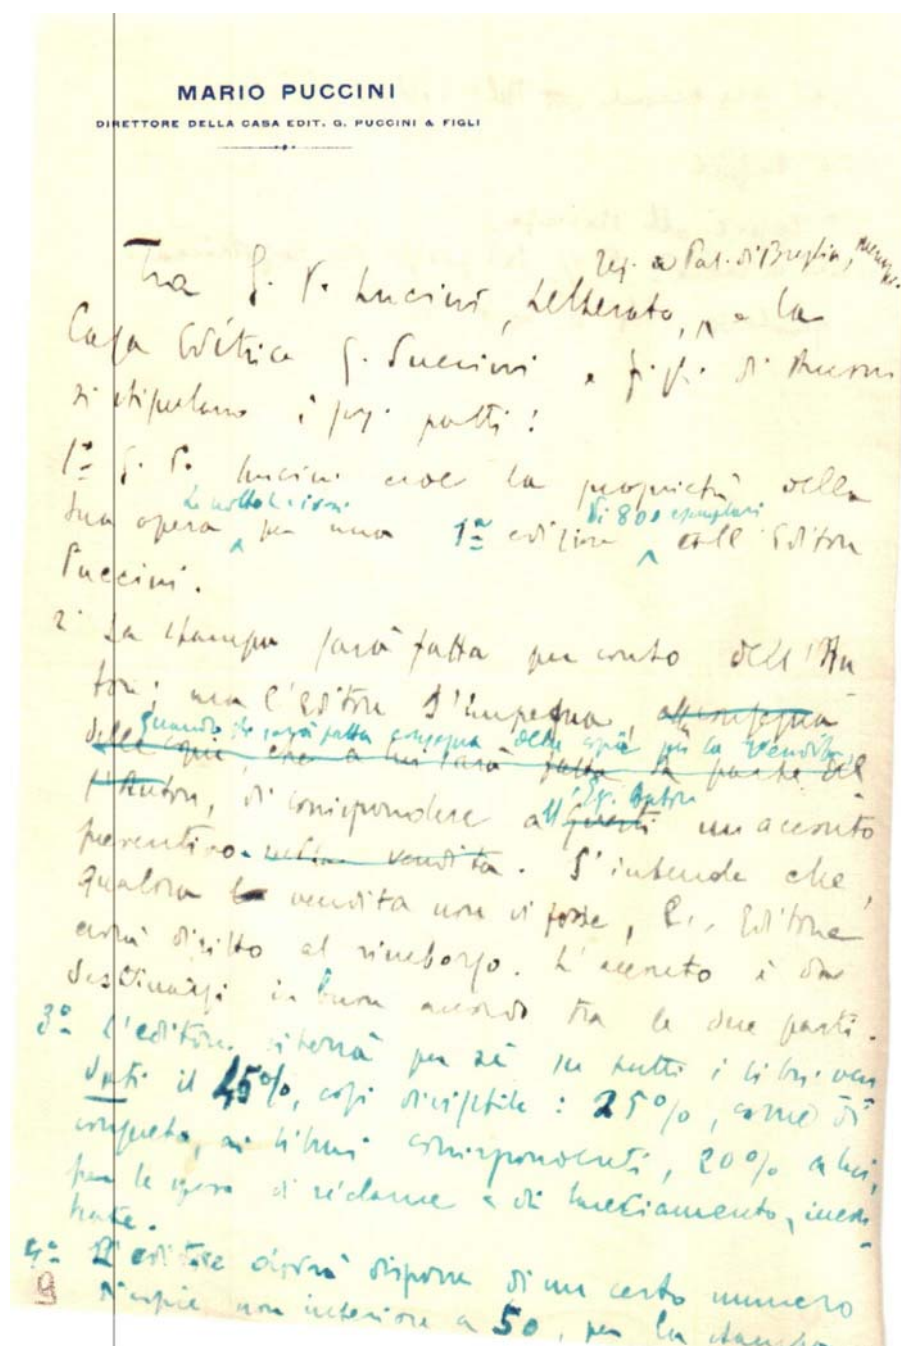 MARIO PUCCINI
DIRETTORE DELLA CASA EDIT. G. PUCCINI & FIGLI
Tra G. P. Lucini, Letterato, e la
Casa Editrice G. Puccini e figli di
si stipulano i patti:
1° G. P. Lucini cede la proprietà della
sua opera per una 1ª edizione di 800 esemplari all'Editore
Puccini.
2° La stampa sarà fatta per conto dell'Au
tore; ma l'editore s'impegna,
quando sarà fatta consegna delle copie per la vendita,
l'Autore, di corrispondere all' Eg. Autore un acconto
preventivo nella vendita. S'intende che,
qualora la vendita non vi fosse, Editore
avrà diritto al rimborso. L'acconto è da
destinarsi in buon accordo tra le due parti.
3° L'editore riterrà per sé su tutti i libri ven
duti il 45%, così divisibile: 25%, come di
consueto, ai librai corrispondenti, 20% a lui,
per le spese di réclame e di
4° L'editore dovrà disporre di un certo numero
di copie non inferiore a 50, per la stampa